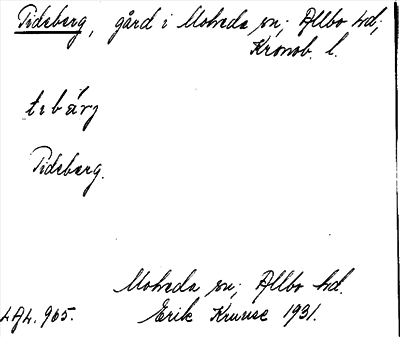 Tideberg, gård i Moheda sn; Allbo hd;
Kronob. l.
tebärj
Tideberg.
Moheda sn; Allbo hd.
LAL. 965. Erik Kruuse 1931.